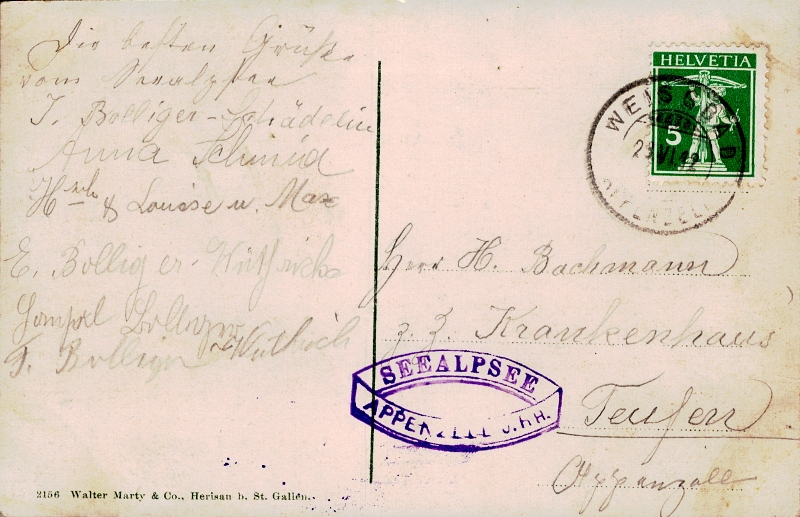 Die besten Grüße
vom Seealpsee
J. Bolliger-Schädelin
Anna Schmid
Hrch & Louise u. Max
E. Bolliger-Wüthrich
Bolliger
F. Bolliger-Wüthrich
HELVETIA
5
WEISSBAD
23.VI.12
APPENZELL
Herr H. Bachmann
z. Z. Krankenhaus
Teufen
Appenzell
SEEALPSEE
APPENZELL J.RH.
2156 Walter Marty & Co., Herisau b. St. Gallen.